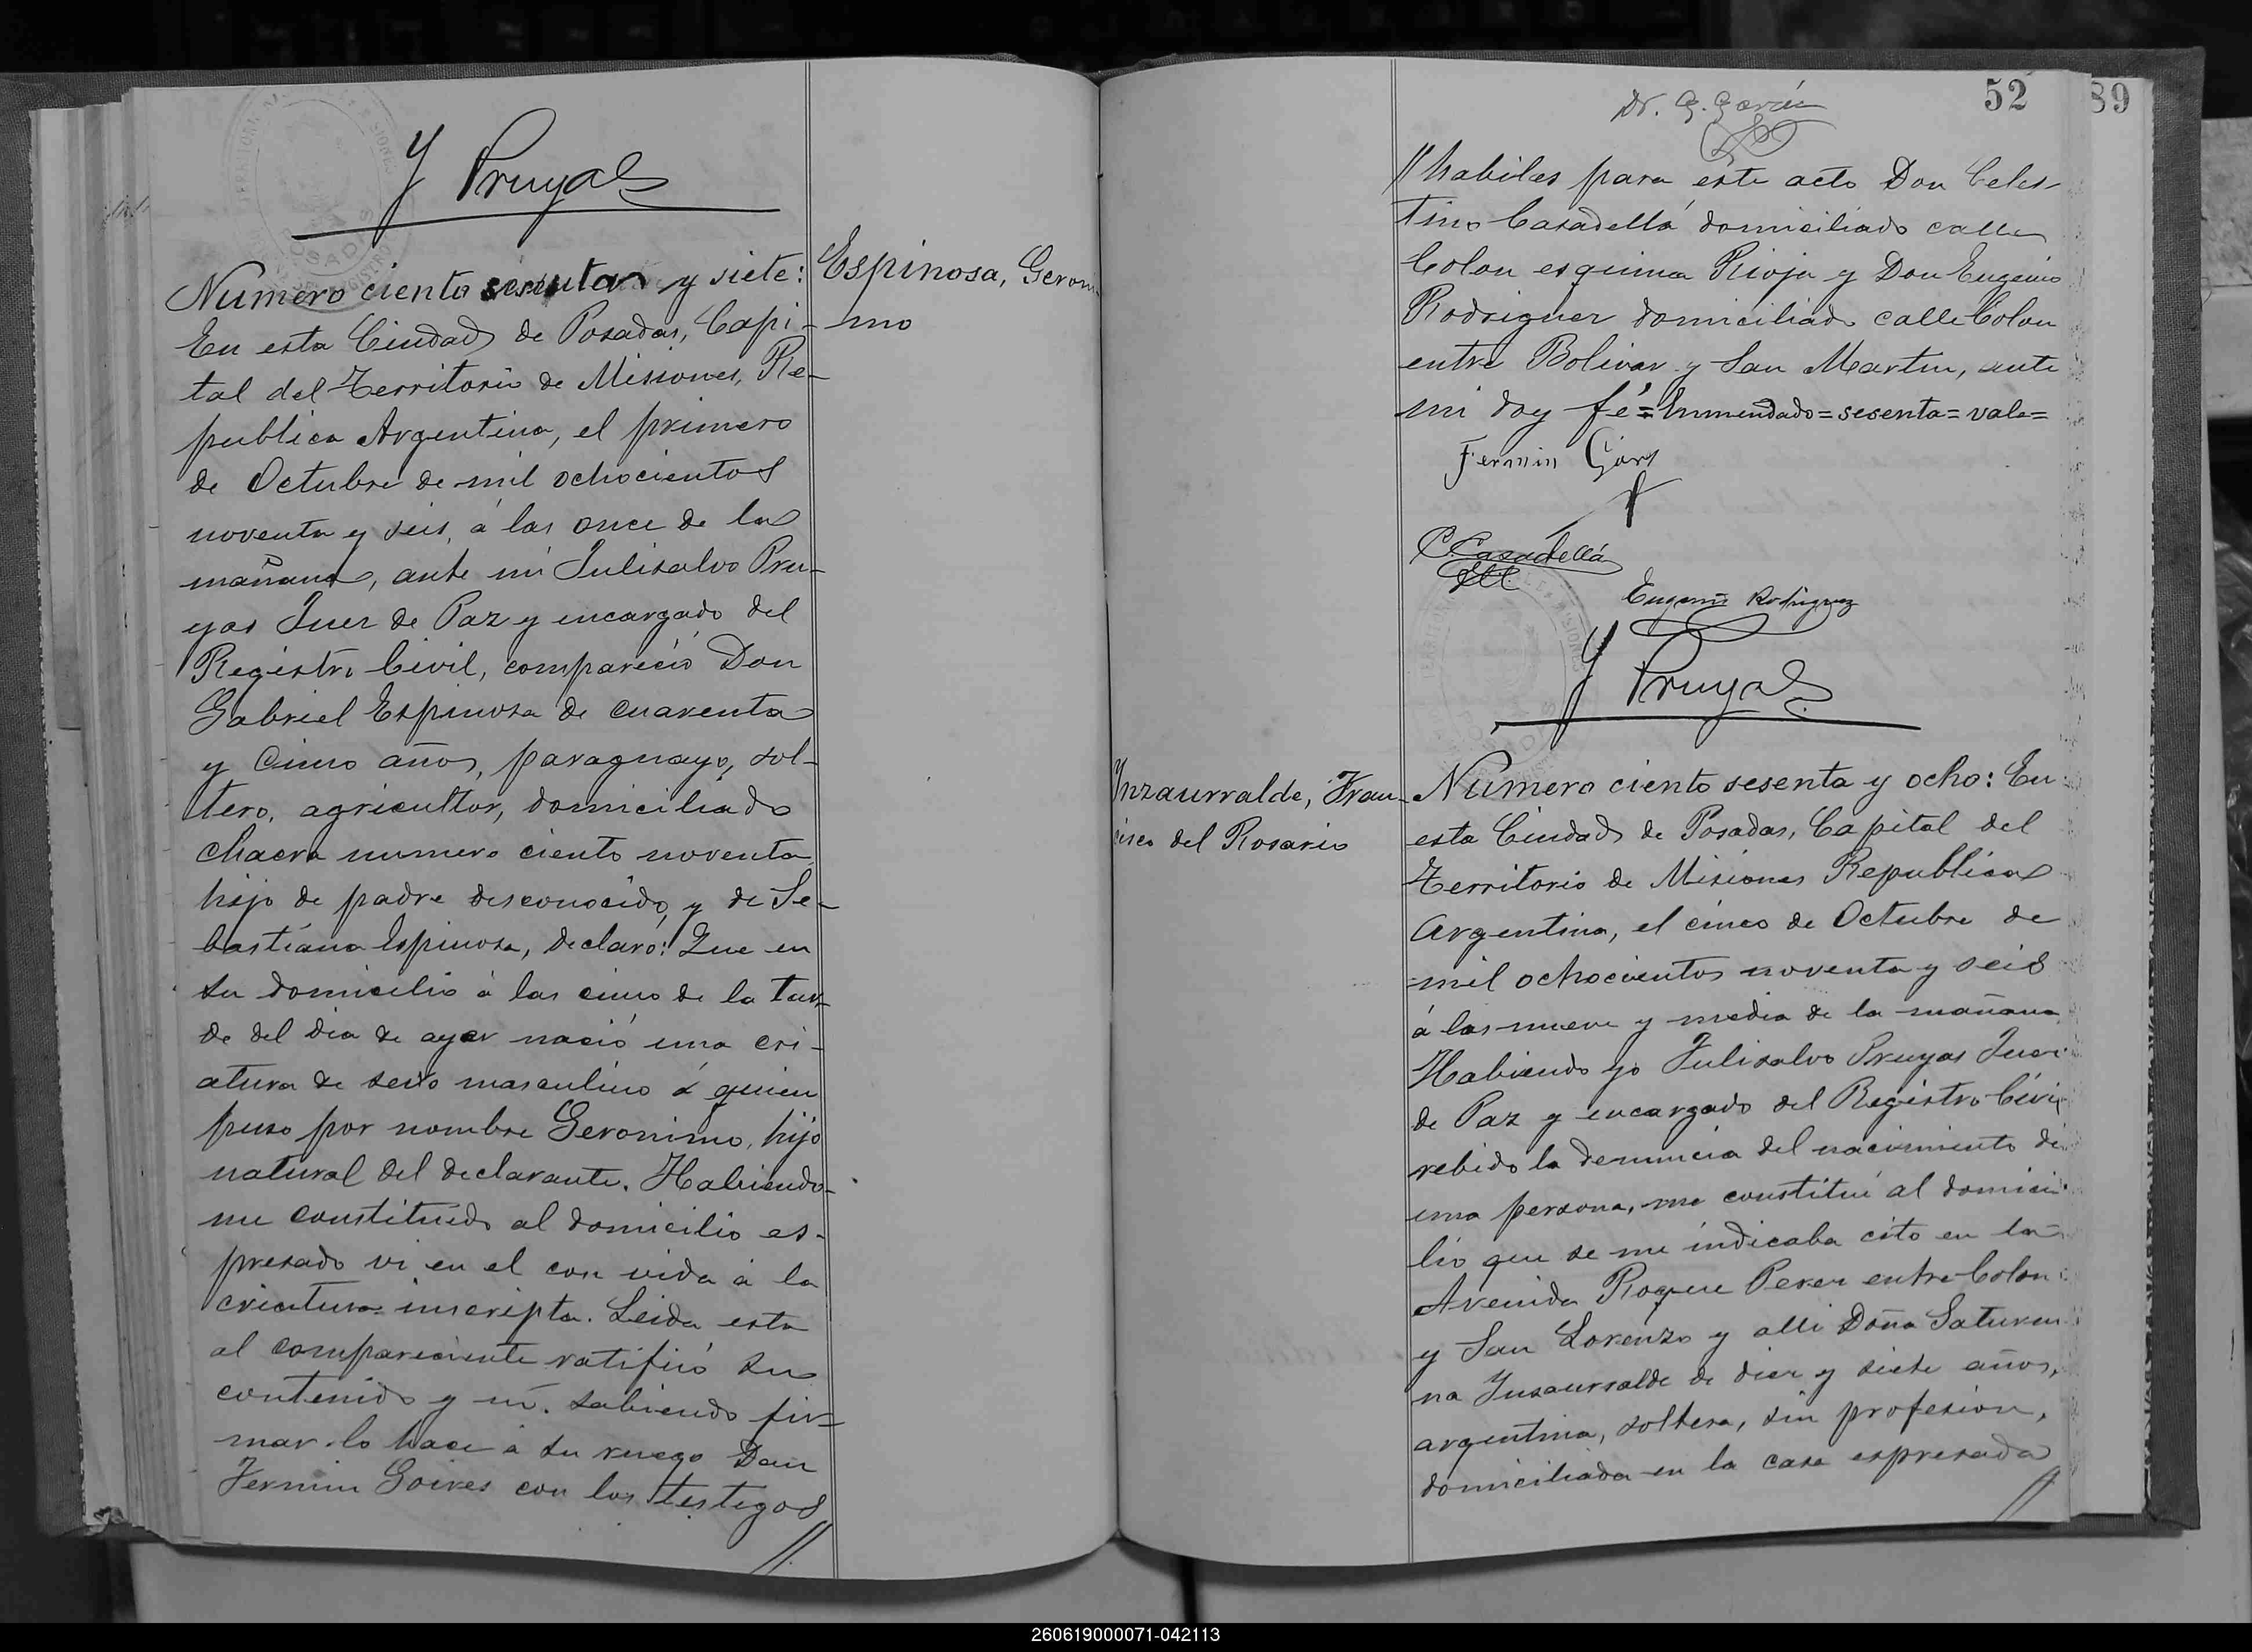 Y Pruyas
Numero ciento sesenta y siete:
En esta Ciudad de Posadas, Capi-
tal del Territorio de Misiones, Re-
publica Argentina, el primero
de Octubre de mil ochocientos
noventa y seis, á las once de la
mañana, ante mi Julisalvo Pru-
yas Juez de Paz y encargado del
Registro Civil, compareció Don
Gabriel Espinosa de cuarenta
y cinco años, paraguayo, sol-
tero, agricultor, domiciliado
chacra numero ciento noventa
hijo de padre desconocido, y de Se-
bastiana Espinosa, declaró: Que en
su domicilio á las cinco de la tar-
de del dia de ayer nació una cri-
atura de sexo masculino á quien
puso por nombre Geronimo, hijo
natural del declarante. Habiendo-
me constituido al domicilio es-
presado vi en el con vida á la
criatura inscripta. Leida esta
al compareciente ratificó su
contenido y no sabiendo fir-
mar lo hace á su ruego Don
Fermin Goires con los testigos
//
Espinosa, Geroni
-mo
52
89
Dr. G. Garcia
// habiles para este acto Don Celes-
tino Casadellá domiciliado calle
Colon esquina Rioja y Don Eugenio
Rodriguez domiciliado calle Colon
entre Bolivar y San Martin, ante
mi doy fé = Enmendado = sesenta = vale =
Fermin
C. Casadellá
Eugenio Rodriguez
Y Pruyas
Ynzaurralde, Fran-
cisco del Rosario
Numero ciento sesenta y ocho: En
esta Ciudad de Posadas, Capital del
Territorio de Misiones Republica
Argentina, el cinco de Octubre de
mil ochocientos noventa y seis
á las nueve y media de la mañana
Habiendo yo Julisalvo Pruyas Juez
de Paz y encargado del Registro Civil
rebido la denuncia del nacimiento de
una persona, me constitui al domici
lio que se me indicaba cito en la
Avenida Roque Perez entre Colon
y San Lorenzo y alli Doña Saturni
na Insaurralde de diez y siete años,
argentina, soltera, sin profesion,
domiciliada en la casa espresada
//
260619000071-042113